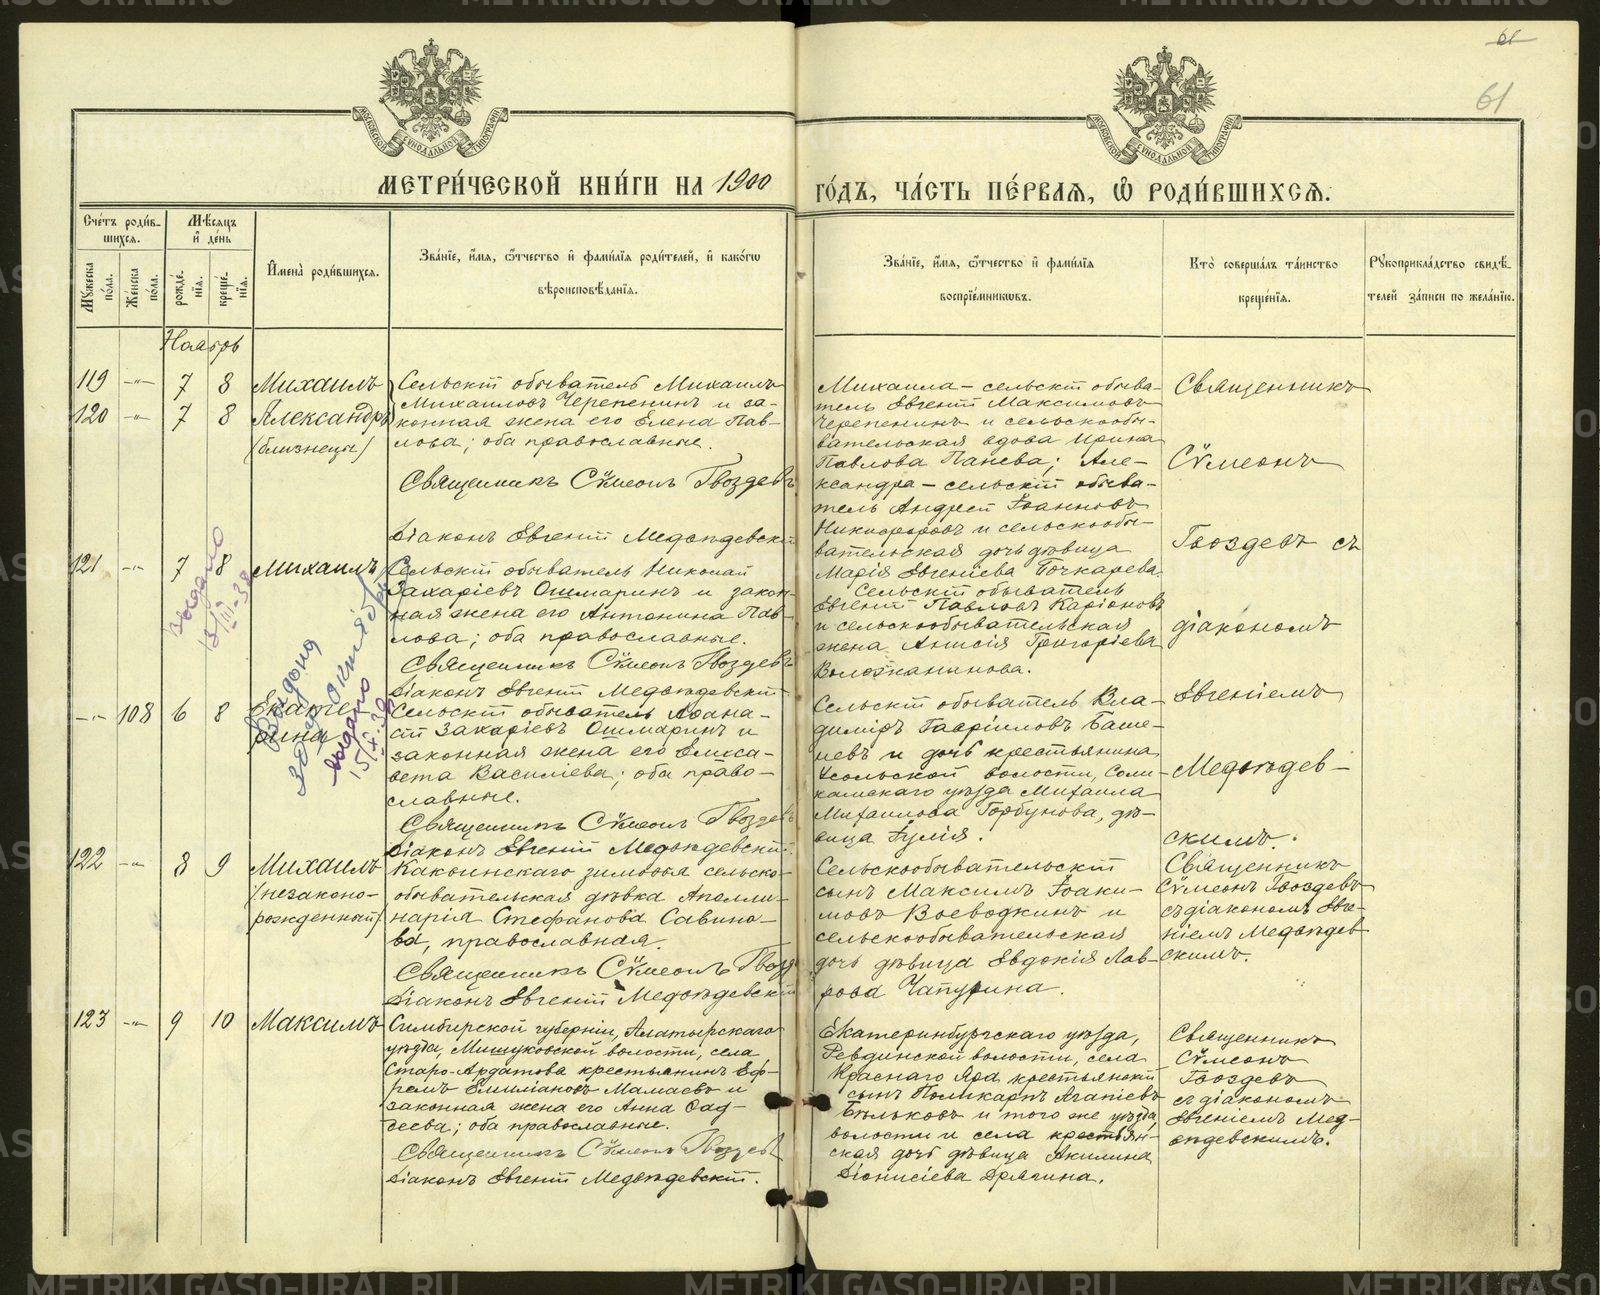 61
61
МЕТРИ́ЧЕСКОЙ КНИ́ГИ НА 1900
ГО́ДЪ, ЧА́СТЬ ПЕ́РВАЯ, Ѽ РОДИ́ВШИХСЯ.
Сче́тъ роди́в-
шихся.
Мѣ́сяцъ
и҆ де́нь
Му́жеска
по́ла.
Же́нска
по́ла.
рожде́-
нїя.
креще́-
нїя.
И҆мена̀ роди́вшихся.
Зва́нїе, и҆́мя, ѻ҆́тчество и҆ фами́лїя роди́телей, и҆ како́гѡ
вѣроисповѣ́данїя.
Зва́нїе, и҆́мя, ѻ҆́тчество и҆ фами́лїя
воспрїе́мниковъ.
Кто̀ соверша́лъ та́инство
креще́нїя.
Рꙋкоприкла́дство свидѣ́-
телей за́писи по жела́нїю.
Ноябрь
119 -"- 7 8 Михаилъ
120 -"- 7 8 Александръ
(близнецы)
Сельскій обыватель Михаилъ
Михаиловъ Черепенинъ и за-
конная жена его Елена Пав-
лова; оба православные.
Священникъ Сѵмеонъ Гвоздевъ
Діаконъ Евгеній Медвѣдевскій
Михаила - сельскій обыва-
тель Евгеній Максимовъ
Черепенинъ и сельскообы-
вательская вдова Ирина
Павлова Панева; Але-
ксандра - сельскій обыва-
тель Андрей Іоанновъ
Никифоровъ и сельскообы-
вательская дочь дѣвица
Марія Евгеніева Бочкарева.
Священникъ
Сѵмеонъ
Гвоздевъ съ
діакономъ
Евгеніемъ
Медвѣдев-
скимъ.
121 -"- 7 8 Михаилъ
Сельскій обыватель Николай
Захаріевъ Ошмаринъ и закон-
ная жена его Антонина Пав-
лова; оба православные.
Священникъ Сѵмеонъ Гвоздевъ
Діаконъ Евгеній Медвѣдевскій
Сельскій обыватель
Евгеній Павловъ Каріоновъ
и сельскообывательская
жена Анисія Григоріева
Воложанинова.
выдано
13/III-38
-"- 108 6 8 Екате-
рина
выдано
15/X-39
Сельскій обыватель Афана-
сій Захаріевъ Ошмаринъ и
законная жена его Елиса-
вета Василіева; оба право-
славные.
Священникъ Сѵмеонъ Гвоздевъ
Діаконъ Евгеній Медвѣдевскій.
Сельскій обыватель Вла-
диміръ Гавріиловъ Баше-
невъ и дочь крестьянина
Усольской волости, Соли-
камскаго уѣзда Михаила
Михаилова Горбунова, дѣ-
вица Іулія.
122 -"- 8 9 Михаилъ
(незаконо-
рожденный)
сельско-
обывательская дѣвка Аполли-
нарія Стефанова Савино-
ва, православная.
Священникъ Сѵмеонъ Гвозд
Діаконъ Евгеній Медвѣдевскій
Сельскообывательскій
сынъ Максимъ Іоаки-
мовъ Воеводкинъ и
сельскообывательская
дочь дѣвица Евдокія Лав-
рова Чапурина.
Священникъ
Сѵмеонъ Гвоздевъ
съ діакономъ Евге-
ніемъ Медвѣдев-
скимъ.
123 -"- 9 10 Максимъ
Симбирской губерніи, Алатырскаго
уѣзда, Мишуковской волости, села
Старо-Ардатова крестьянинъ Еф-
ремъ Емиліановъ Мамаевъ и
законная жена его Анна Фад-
деева; оба православные.
Священникъ Сѵмеонъ Гвоздевъ
Діаконъ Евгеній Медвѣдевскій.
Екатеринбургскаго уѣзда,
Ревдинской волости, села
Краснаго Яра крестьянскій
сынъ Поликарпъ Агапіевъ
Бѣльковъ и того же уѣзда,
волости и села крестьян-
ская дочь дѣвица Акилина
Діонисіева Дрягина.
Священникъ
Сѵмеонъ
Гвоздевъ
съ діакономъ
Евгеніемъ Мед-
вѣдевскимъ.
METRIKI.GASO-URAL.RU